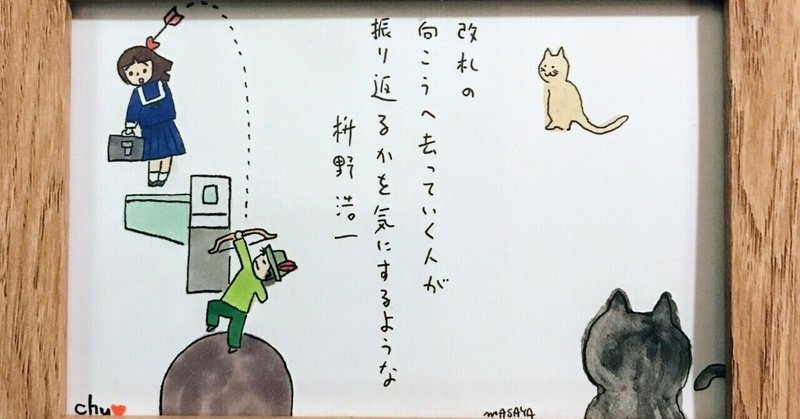 改札の
向こうへ去っていく人が
振り返るかを気にするような
枡野浩一
chu
MASAYA